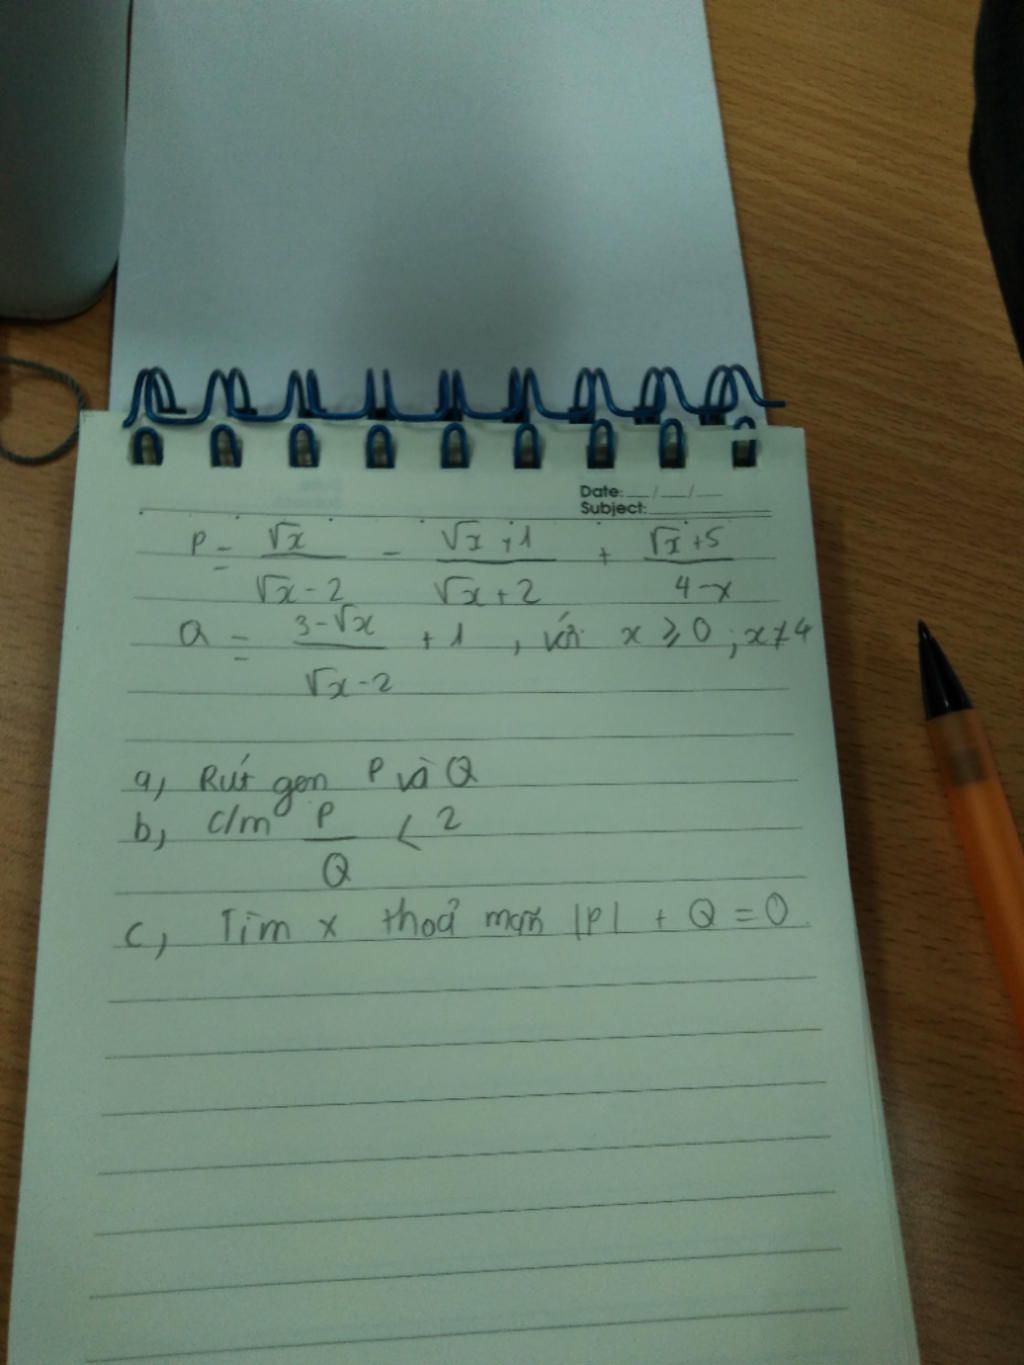 Date: __/__/__
Subject:
P = √x / (√x - 2) - (√x + 1) / (√x + 2) + (√x + 5) / (4 - x)
Q = (3 - √x) / (√x - 2) + 1 , với x ≥ 0 ; x ≠ 4
a, Rút gọn P và Q
b, c/m P / Q < 2
c, Tìm x thoả mãn |P| + Q = 0